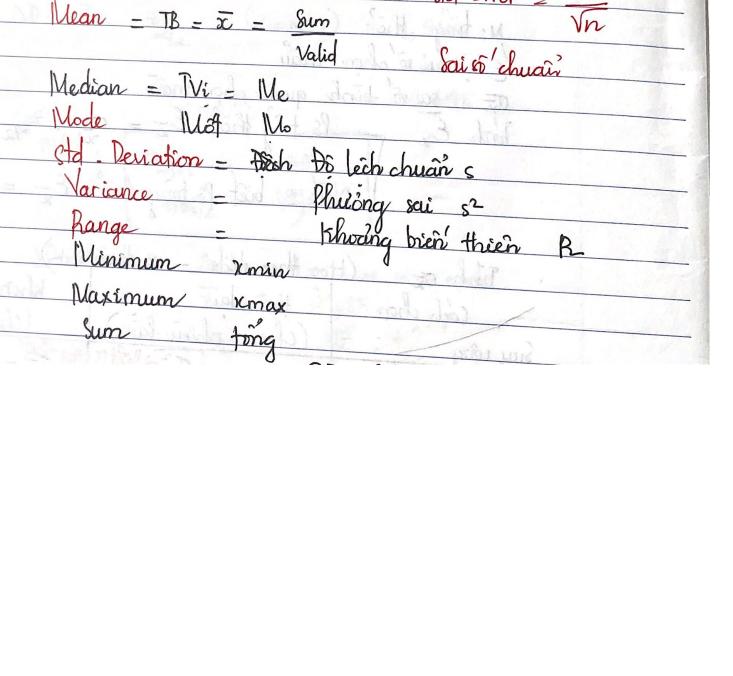 Mean = TB = x̄ = Sum / Valid
√n
Sai số chuẩn
Median = TVị = Me
Mode Mốt Mo
Std. Deviation = Độ lệch chuẩn s
Variance = Phương sai s²
Range = Khoảng biến thiên R
Minimum xmin
Maximum xmax
Sum tổng